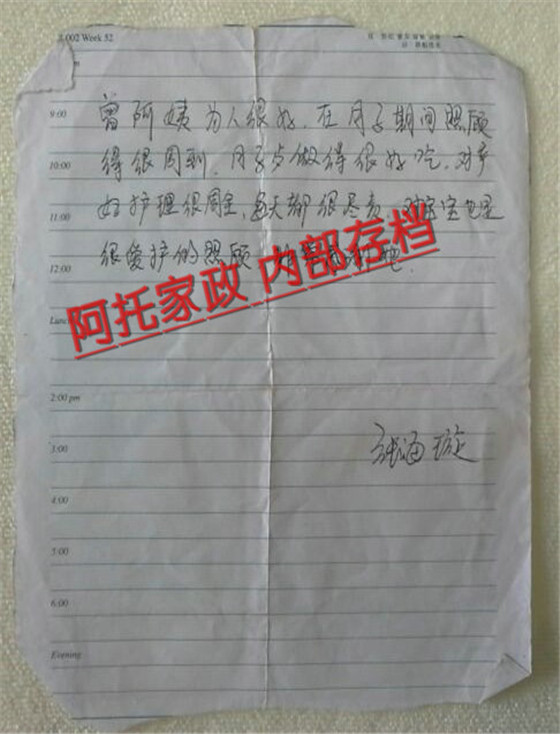 2002 Week 52
9:00
曾阿姨为人很好,在月子期间照顾
10:00
得很周到,月子步做得很好吃,对产
11:00
妇护理很周全,每天都很尽责,对宝宝也是
很爱护的照顾,非常感谢她.
12:00
阿托家政 内部存档
Lunch
2:00 pm
3:00
张海璇
4:00
5:00
6:00
Evening